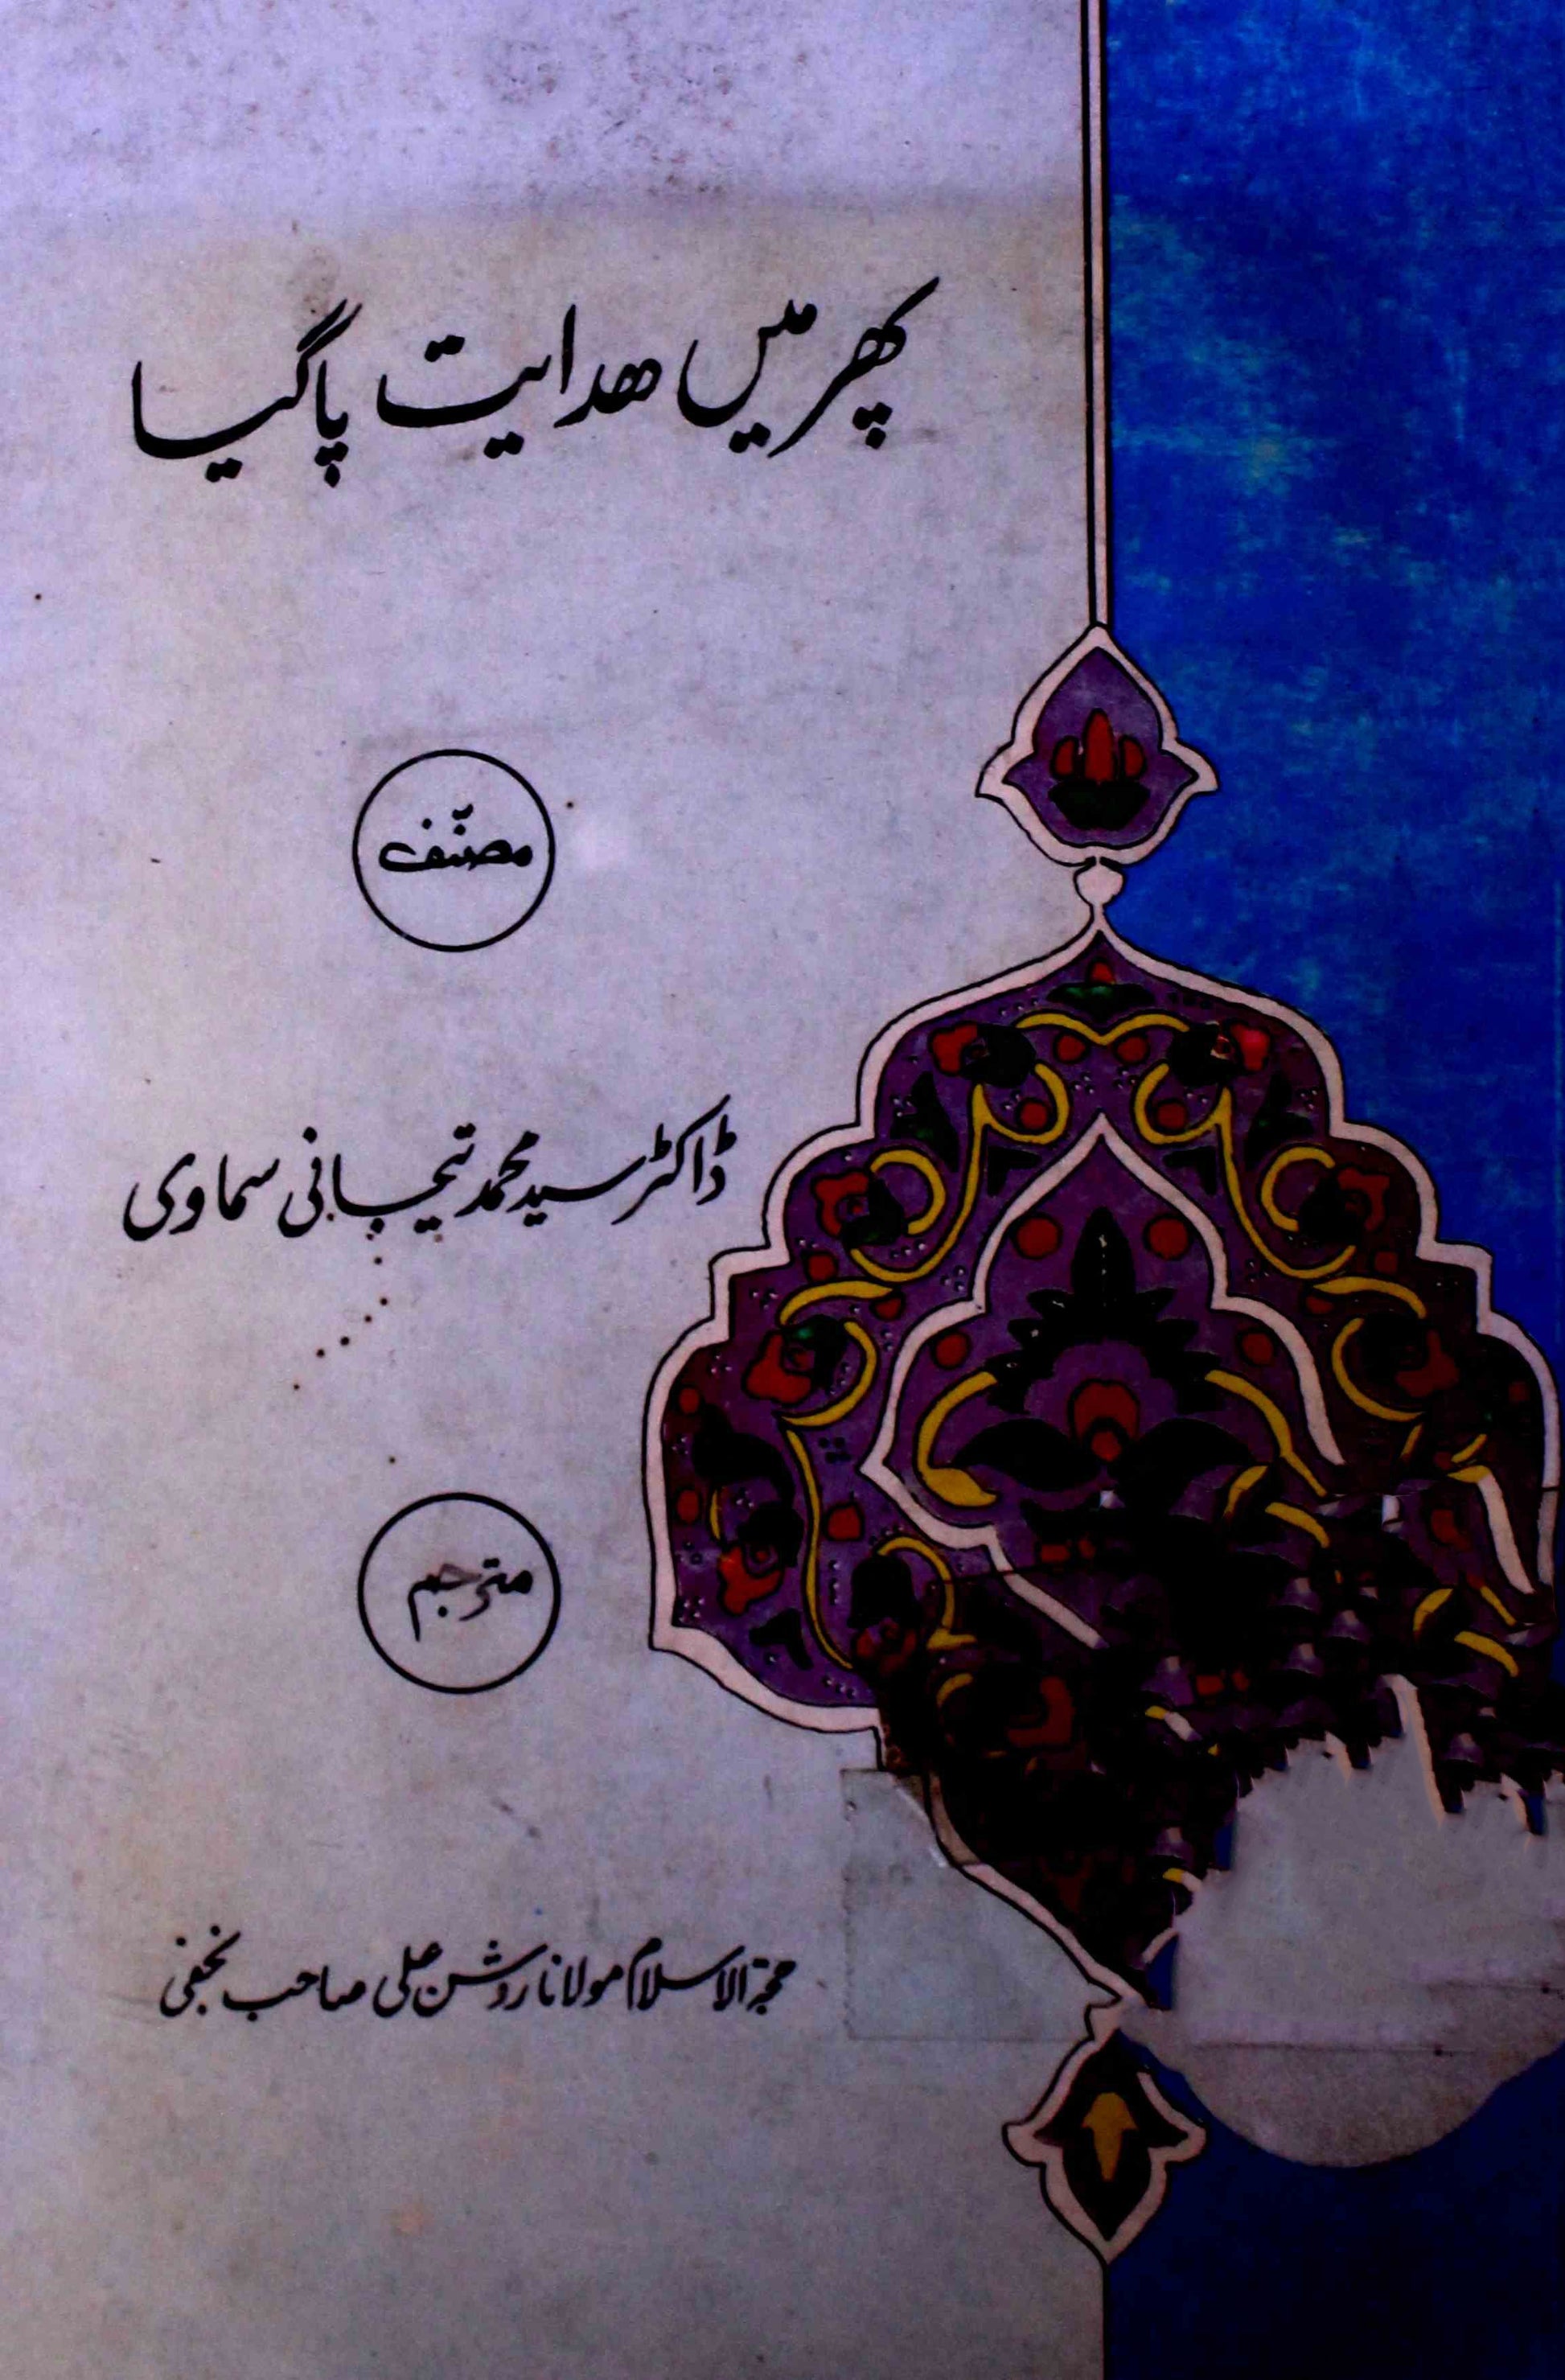 پھر میں ھدایت پاگیا
مصنّف
ڈاکٹر سید محمد تیجانی سماوی
مترجم
حجۃ الاسلام مولانا روشن علی صاحب نجفی